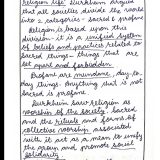 religion life. Durkheim argues
that all societies divide the world
into 2 categories - sacred & profane
Religion is based upon this
division. it is a unified system
of beliefs and practices related to
sacred things - things that are
set apart and forbidden.
Profane are mundane, day to
day things. Anything that is not
sacred is profane.
Durkheim sees religion as
worship of the society. Sacred
and the rituals and forms of
collective worship associated
with it act as a means to unify
the group and promotes social
solidarity